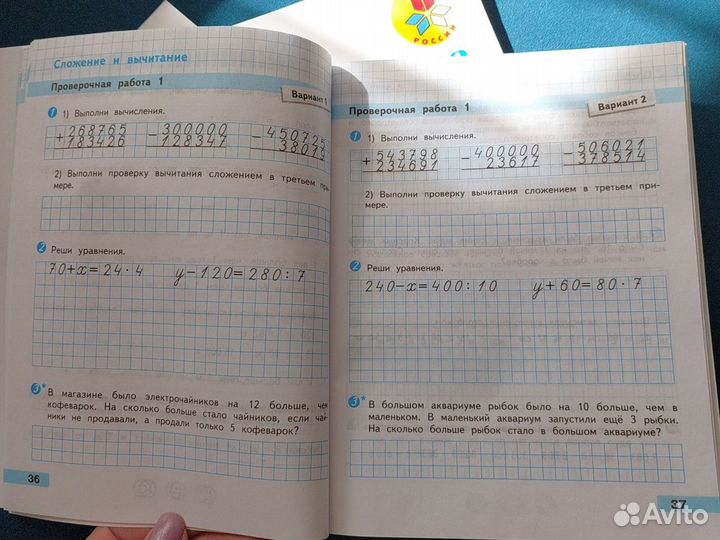 РОССИИ
Сложение и вычитание
Проверочная работа 1
Вариант 1
1 1) Выполни вычисления.
+ 268765 − 300000 − 450725
183426 128347 38079
2) Выполни проверку вычитания сложением в третьем при-
мере.
2 Реши уравнения.
70+x=24·4 y−120=280:7
3* В магазине было электрочайников на 12 больше, чем
кофеварок. На сколько больше стало чайников, если чай-
ники не продавали, а продали только 5 кофеварок?
36
Проверочная работа 1
Вариант 2
1 1) Выполни вычисления.
+ 543798 − 400000 − 506021
234691 23617 378514
2) Выполни проверку вычитания сложением в третьем при-
мере.
2 Реши уравнения.
240−x=400:10 y+60=80·7
3* В большом аквариуме рыбок было на 10 больше, чем в
маленьком. В маленький аквариум запустили ещё 3 рыбки.
На сколько больше рыбок стало в большом аквариуме?
37
Avito